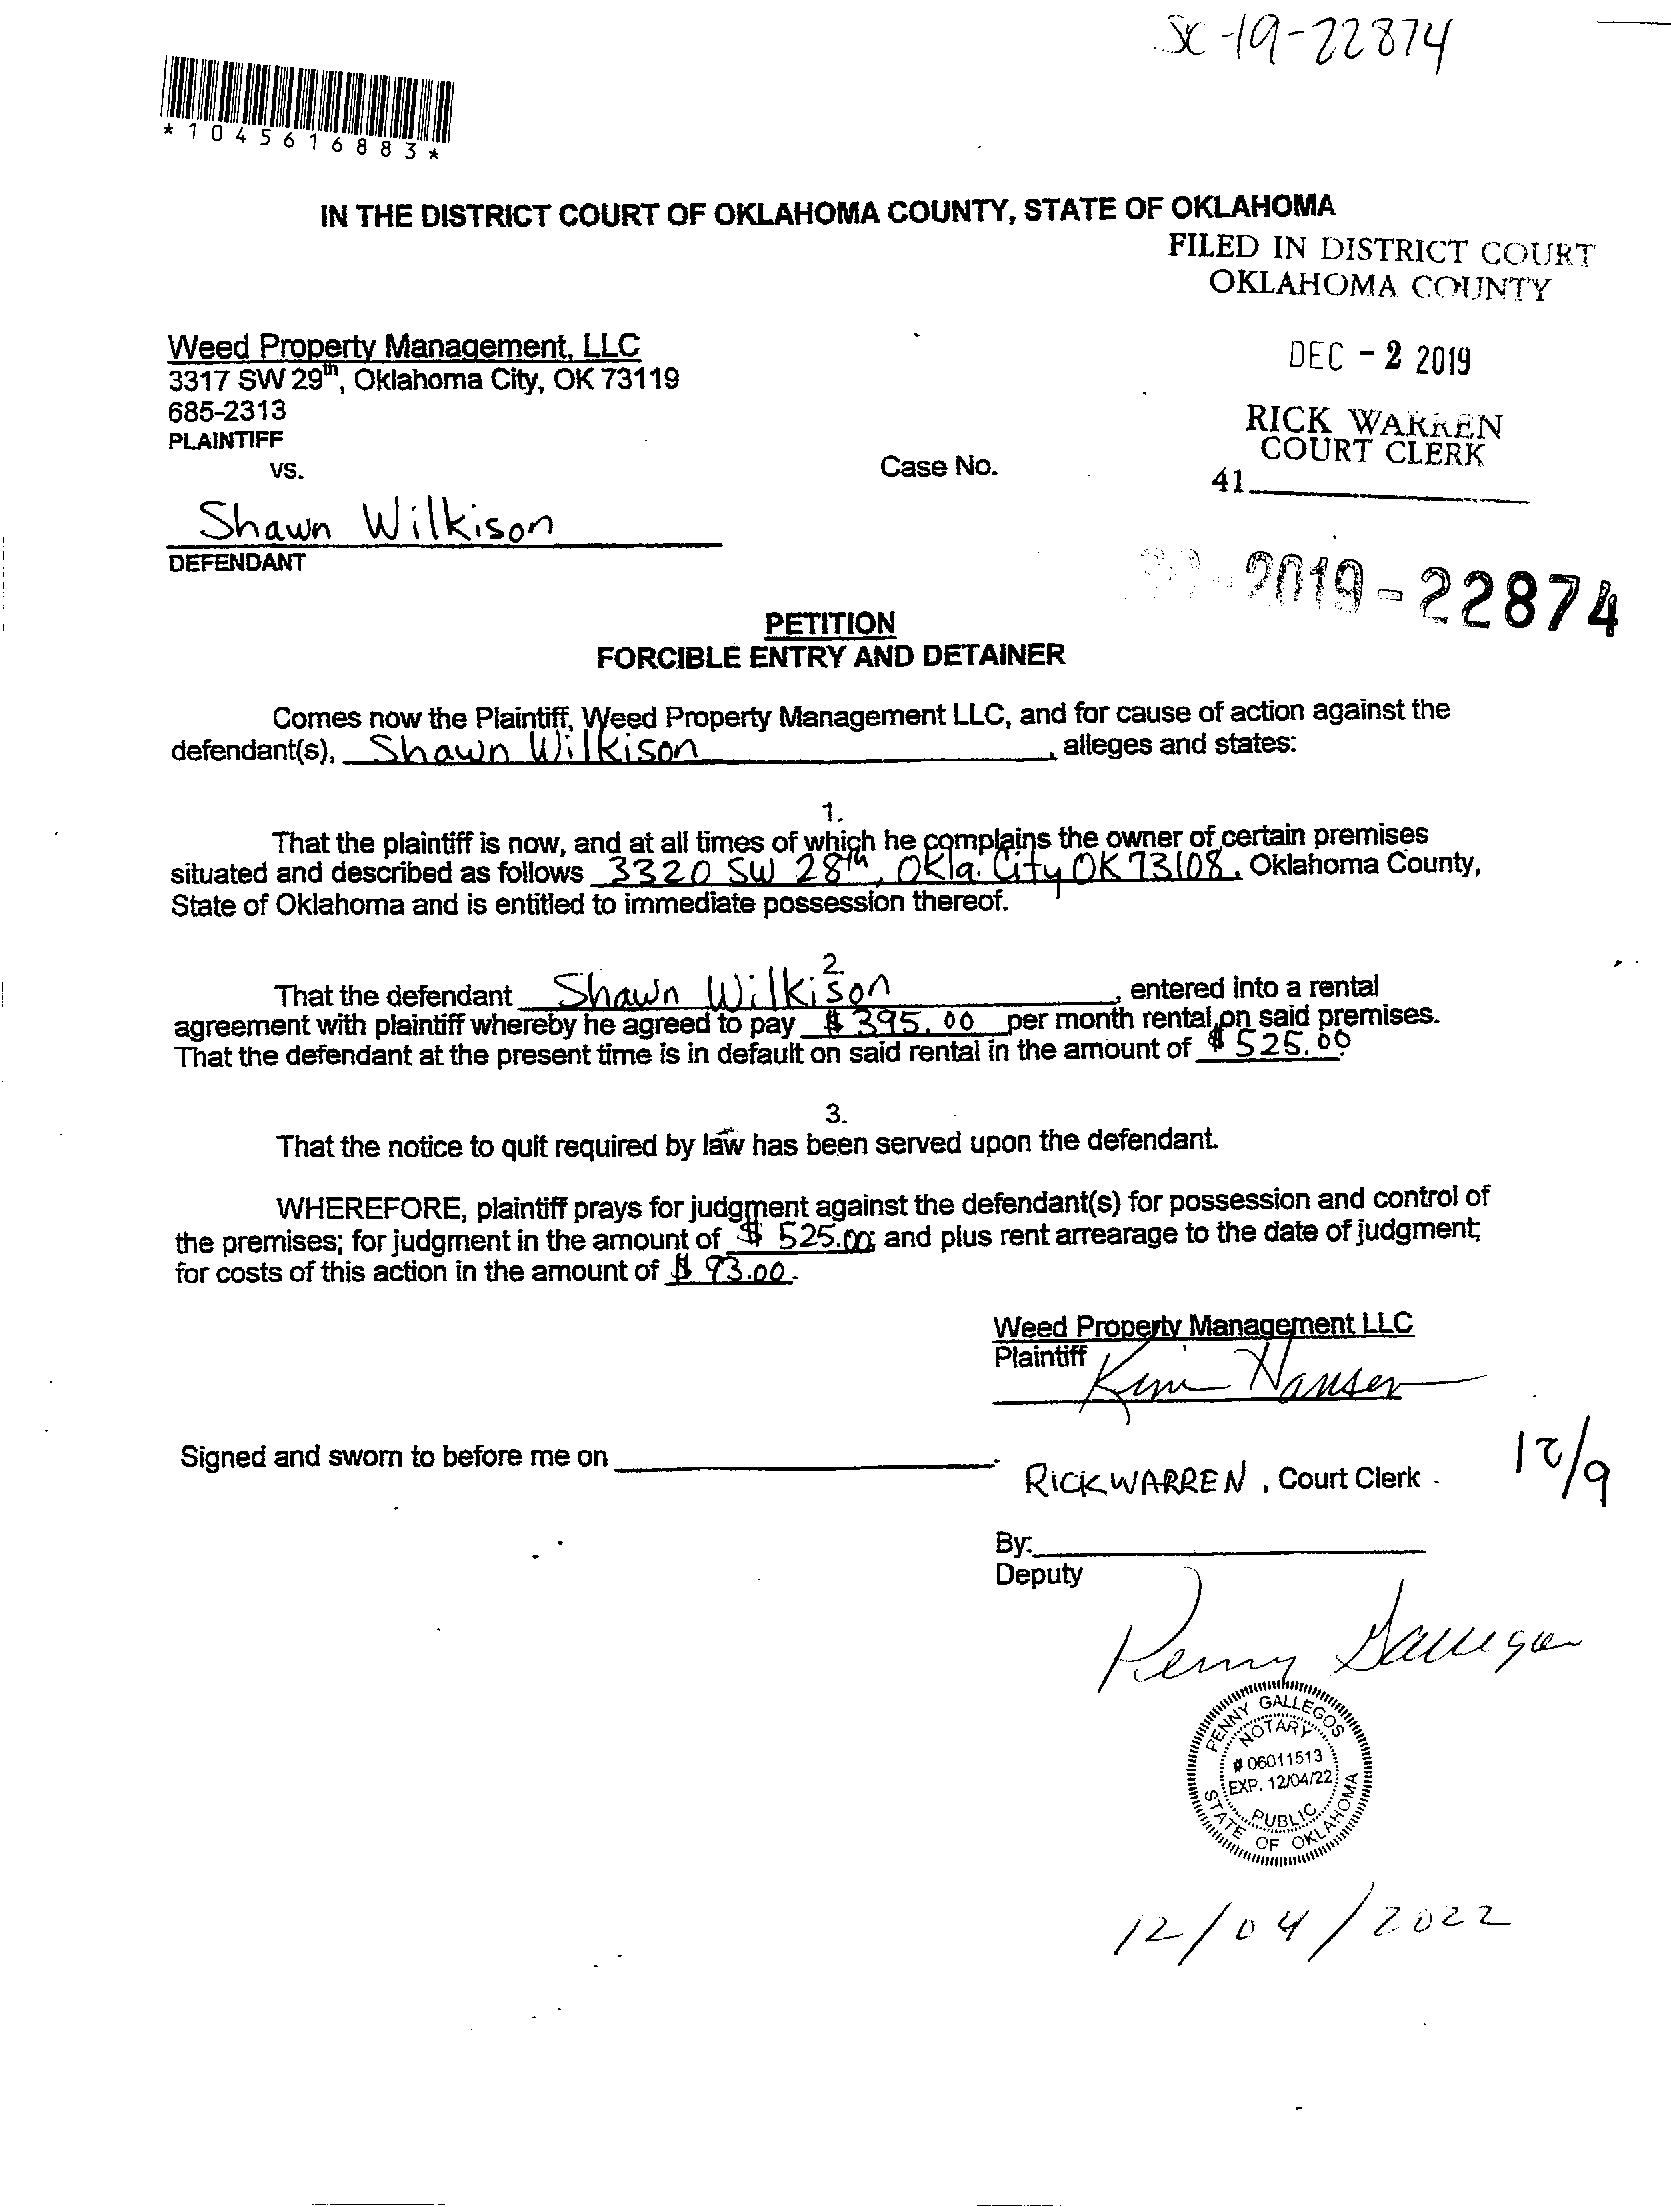 SC-19-22874
*1045616883*
IN THE DISTRICT COURT OF OKLAHOMA COUNTY, STATE OF OKLAHOMA
FILED IN DISTRICT COURT
OKLAHOMA COUNTY
Weed Property Management, LLC
3317 SW 29th, Oklahoma City, OK 73119
685-2313
PLAINTIFF
DEC - 2 2019
RICK WARREN
COURT CLERK
41
vs.
Case No.
Shawn Wilkison
DEFENDANT
2019-22874
PETITION
FORCIBLE ENTRY AND DETAINER
Comes now the Plaintiff, Weed Property Management LLC, and for cause of action against the
defendant(s), Shawn Wilkison, alleges and states:
1.
That the plaintiff is now, and at all times of which he complains the owner of certain premises
situated and described as follows 3320 SW 28th, Okla. City OK 73108, Oklahoma County,
State of Oklahoma and is entitled to immediate possession thereof.
2.
That the defendant Shawn Wilkison, entered into a rental
agreement with plaintiff whereby he agreed to pay $395.00 per month rental on said premises.
That the defendant at the present time is in default on said rental in the amount of $525.00.
3.
That the notice to quit required by law has been served upon the defendant.
WHEREFORE, plaintiff prays for judgment against the defendant(s) for possession and control of
the premises; for judgment in the amount of $525.00; and plus rent arrearage to the date of judgment;
for costs of this action in the amount of $93.00.
Weed Property Management LLC
Plaintiff
Kim Hansen
Signed and sworn to before me on
12/9
RICK WARREN, Court Clerk
By:
Deputy
Penny Gallegos
PENNY GALLEGOS
NOTARY
# 06011513
EXP. 12/04/22
PUBLIC
STATE OF OKLAHOMA
12/04/2022